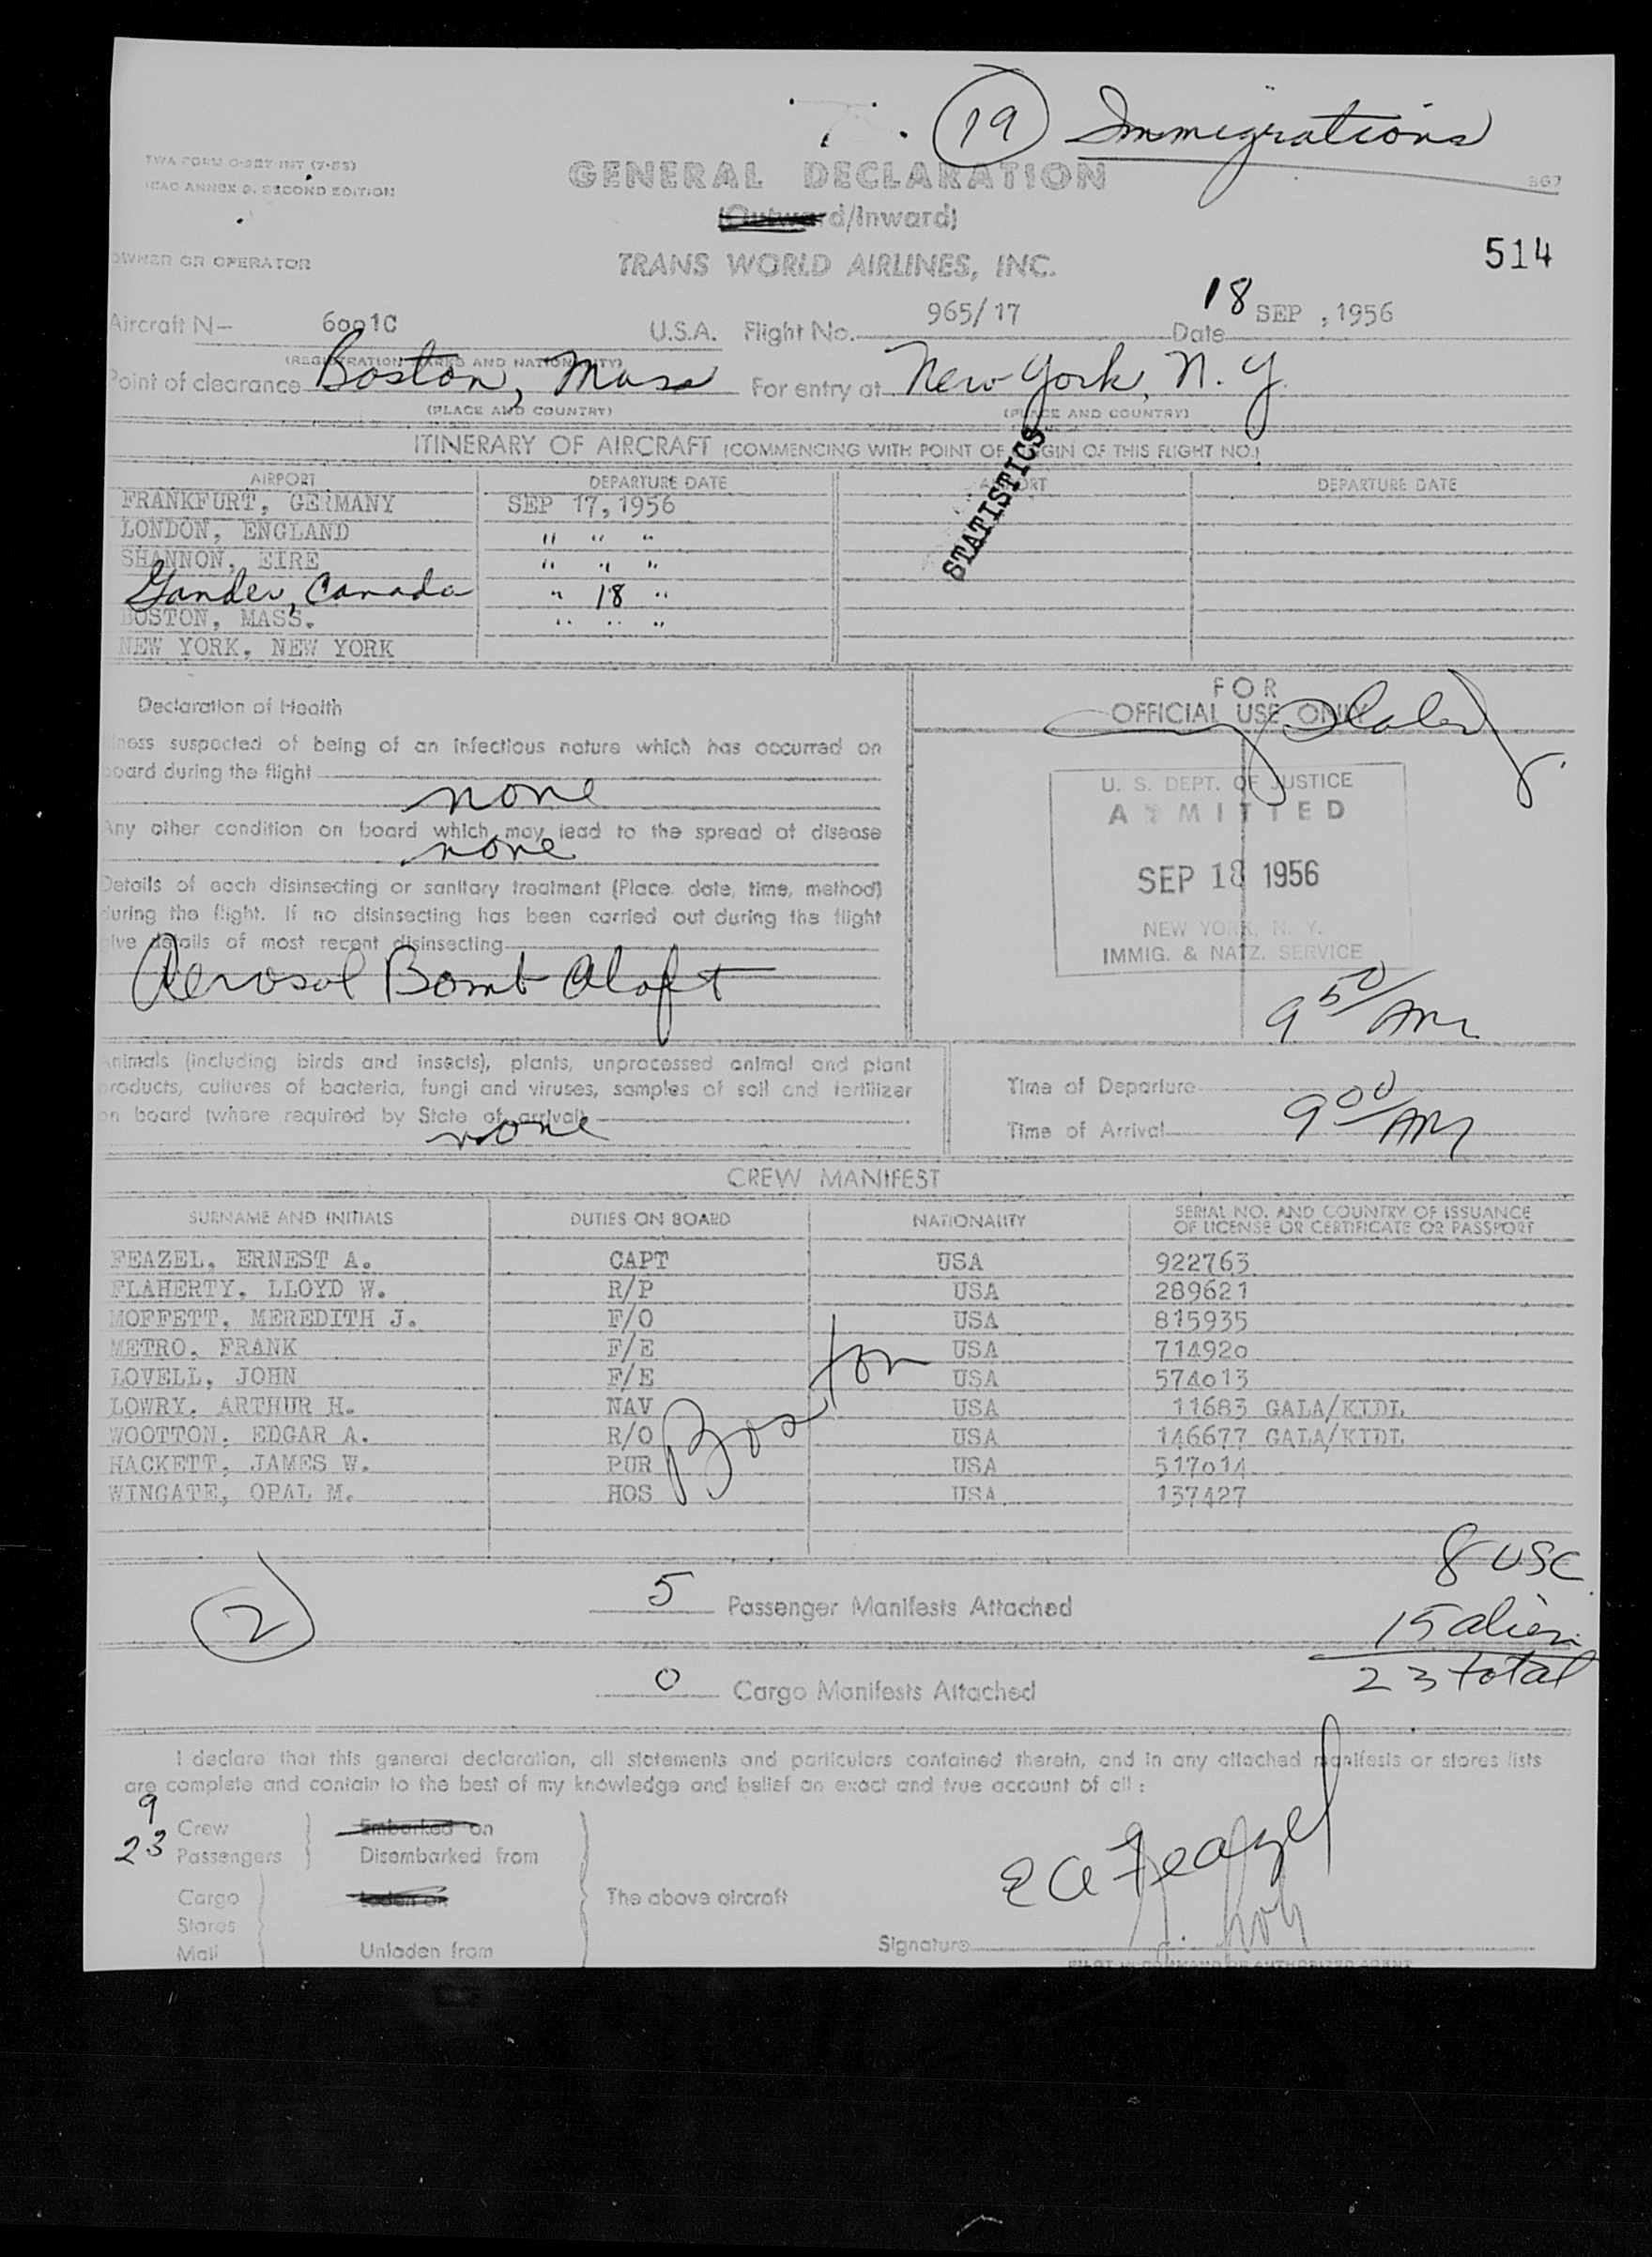 19 Immigrations
TWA FORM O-327 INT (7-55)
ICAO ANNEX 9, SECOND EDITION
GENERAL DECLARATION
(Outward/Inward)
514
OWNER OR OPERATOR
TRANS WORLD AIRLINES, INC.
Aircraft N- 6001C U.S.A. Flight No. 965/17 Date 18 SEP , 1956
(REGISTRATION MARKS AND NATIONALITY)
Point of clearance Boston, Mass For entry at New York, N.Y.
(PLACE AND COUNTRY) (PLACE AND COUNTRY)
STATISTICS
ITINERARY OF AIRCRAFT (COMMENCING WITH POINT OF ORIGIN OF THIS FLIGHT NO.)
AIRPORT DEPARTURE DATE AIRPORT DEPARTURE DATE
FRANKFURT, GERMANY SEP 17, 1956
LONDON, ENGLAND " " "
SHANNON, EIRE " " "
Gander, Canada " 18 "
BOSTON, MASS. " " "
NEW YORK, NEW YORK
Declaration of Health
FOR
OFFICIAL USE ONLY
Illness suspected of being of an infectious nature which has occurred on
board during the flight
none
Any other condition on board which may lead to the spread of disease
none
Details of each disinsecting or sanitary treatment (Place, date, time, method)
during the flight. If no disinsecting has been carried out during the flight
give details of most recent disinsecting
Aerosol Bomb Aloft
U. S. DEPT. OF JUSTICE
ADMITTED
SEP 18 1956
NEW YORK, N. Y.
IMMIG. & NATZ. SERVICE
9 50/AM
Animals (including birds and insects), plants, unprocessed animal and plant
products, cultures of bacteria, fungi and viruses, samples of soil and fertilizer
on board (where required by State of arrival)
none
Time of Departure
Time of Arrival 9 00/AM
CREW MANIFEST
SURNAME AND INITIALS DUTIES ON BOARD NATIONALITY SERIAL NO. AND COUNTRY OF ISSUANCE
OF LICENSE OR CERTIFICATE OR PASSPORT
FEAZEL, ERNEST A. CAPT USA 922763
FLAHERTY, LLOYD W. R/P USA 289621
MOFFETT, MEREDITH J. F/O USA 815935
METRO, FRANK F/E USA 714920
LOVELL, JOHN F/E USA 574013
LOWRY, ARTHUR H. NAV USA 11683 GALA/KIDL
WOOTTON, EDGAR A. R/O USA 146677 GALA/KIDL
HACKETT, JAMES W. PUR USA 517014
WINGATE, OPAL M. HOS USA 137427
Boston
8 USC
15 alien
23 total
2
5 Passenger Manifests Attached
0 Cargo Manifests Attached
I declare that this general declaration, all statements and particulars contained therein, and in any attached manifests or stores lists
are complete and contain to the best of my knowledge and belief an exact and true account of all :
9 Crew Embarked on
23 Passengers Disembarked from
Cargo Laden on The above aircraft
Stores
Mail Unladen from
E A Feazel
Signature
PILOT IN COMMAND OR AUTHORIZED AGENT